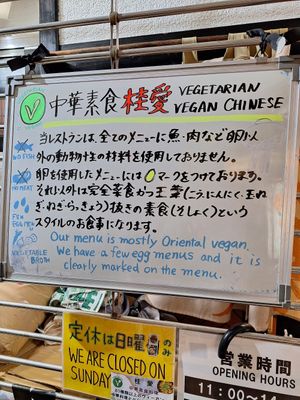 中華素食 桂愛 VEGETARIAN
VEGAN CHINESE
当レストランは、全てのメニューに魚・肉など卵以
外の動物性の材料を使用しておりません。
卵を使用したメニューには○マークをつけております。
それ以外は完全菜食かつ五葷(こう、にんにく、玉ね
ぎ、ねぎ、らっきょう)抜きの素食(そしょく)という
スタイルのお食事になります。
Our menu is mostly Oriental vegan.
We have a few egg menus and it is
clearly marked on the menu.
NO FISH
NO MEAT
VEGETABLE
BROTH
定休は日曜のみ
WE ARE CLOSED ON
SUNDAY
桂愛
営業時間
OPENING HOURS
11:00～14